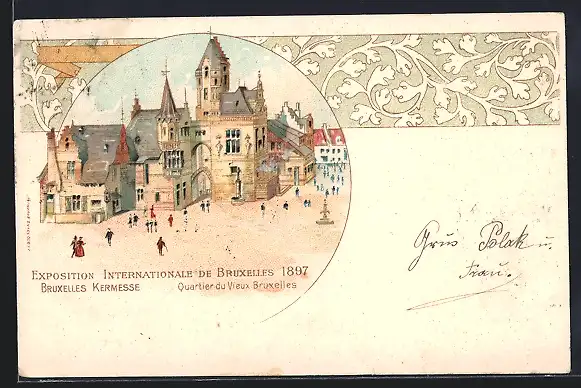 EXPOSITION INTERNATIONALE DE BRUXELLES 1897
BRUXELLES KERMESSE Quartier du Vieux Bruxelles
Grus Polak u.
Frau.